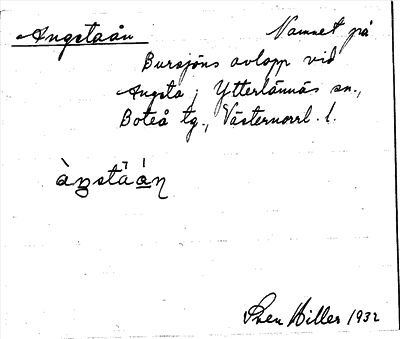 Angstaån Namnet på
Bursjöns avlopp vid
Angsta, Ytterlännäs sn.,
Boteå tg., Västernorrl. l.
àŋstäán
Sven Hiller 1932